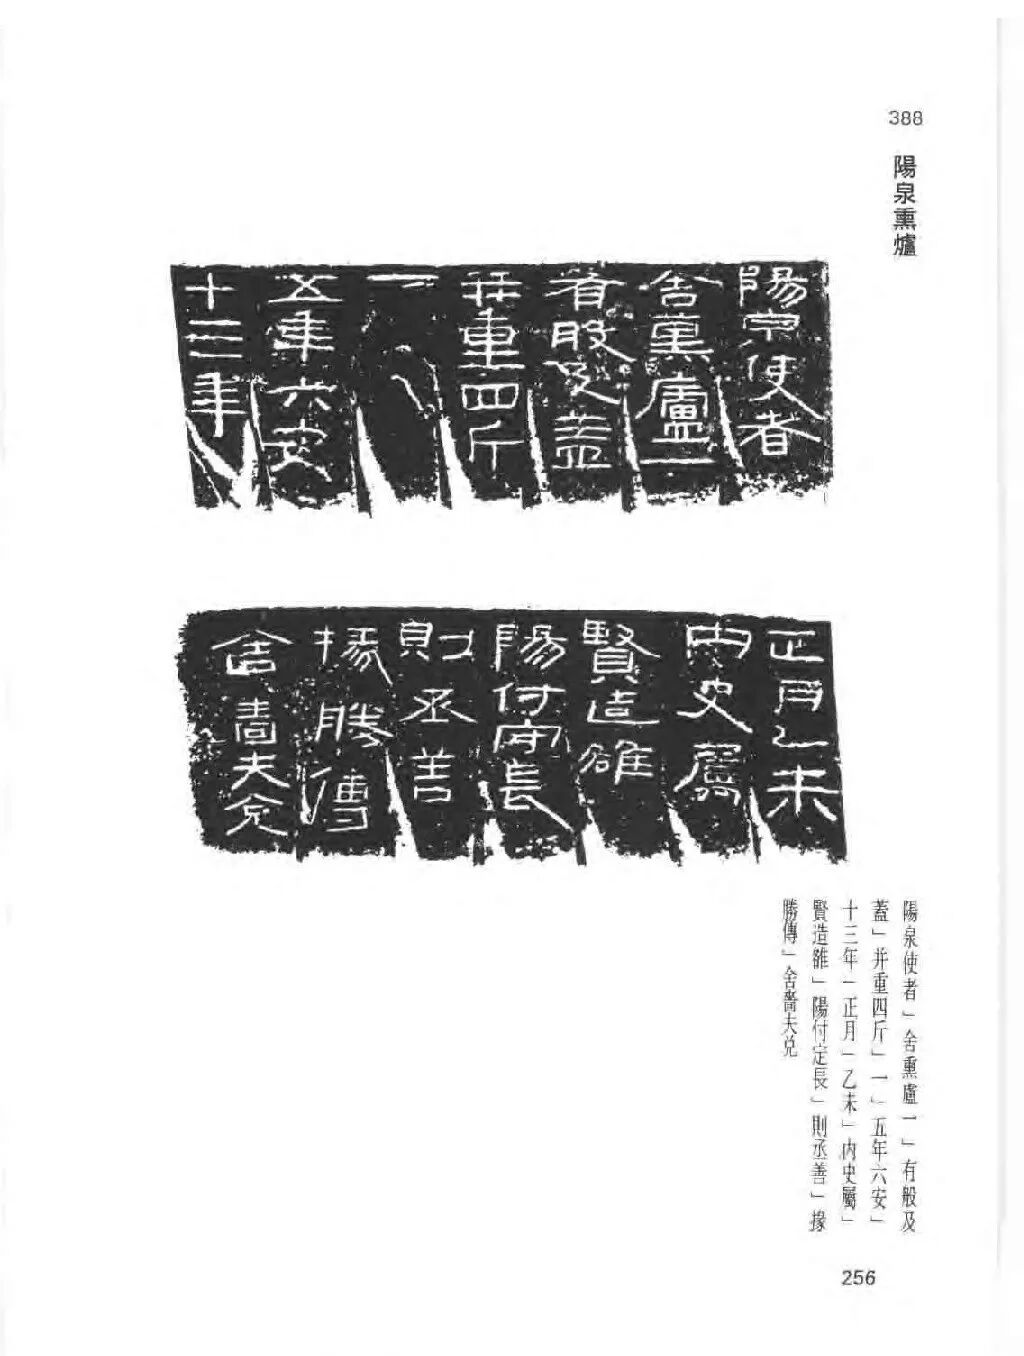 388
陽泉熏爐
陽泉使者
舍熏廬一
有般及蓋
并重四斤
一
五年六安
十三年
正月乙未
内史屬
賢造雒
陽付守長
則丞善
掾勝傳
舍嗇夫兑
陽泉使者」舍熏廬一」有般及
蓋」并重四斤」一」五年六安」
十三年」正月」乙未」内史屬」
賢造雒」陽付定長」則丞善」掾
勝傳」舍嗇夫兑
256